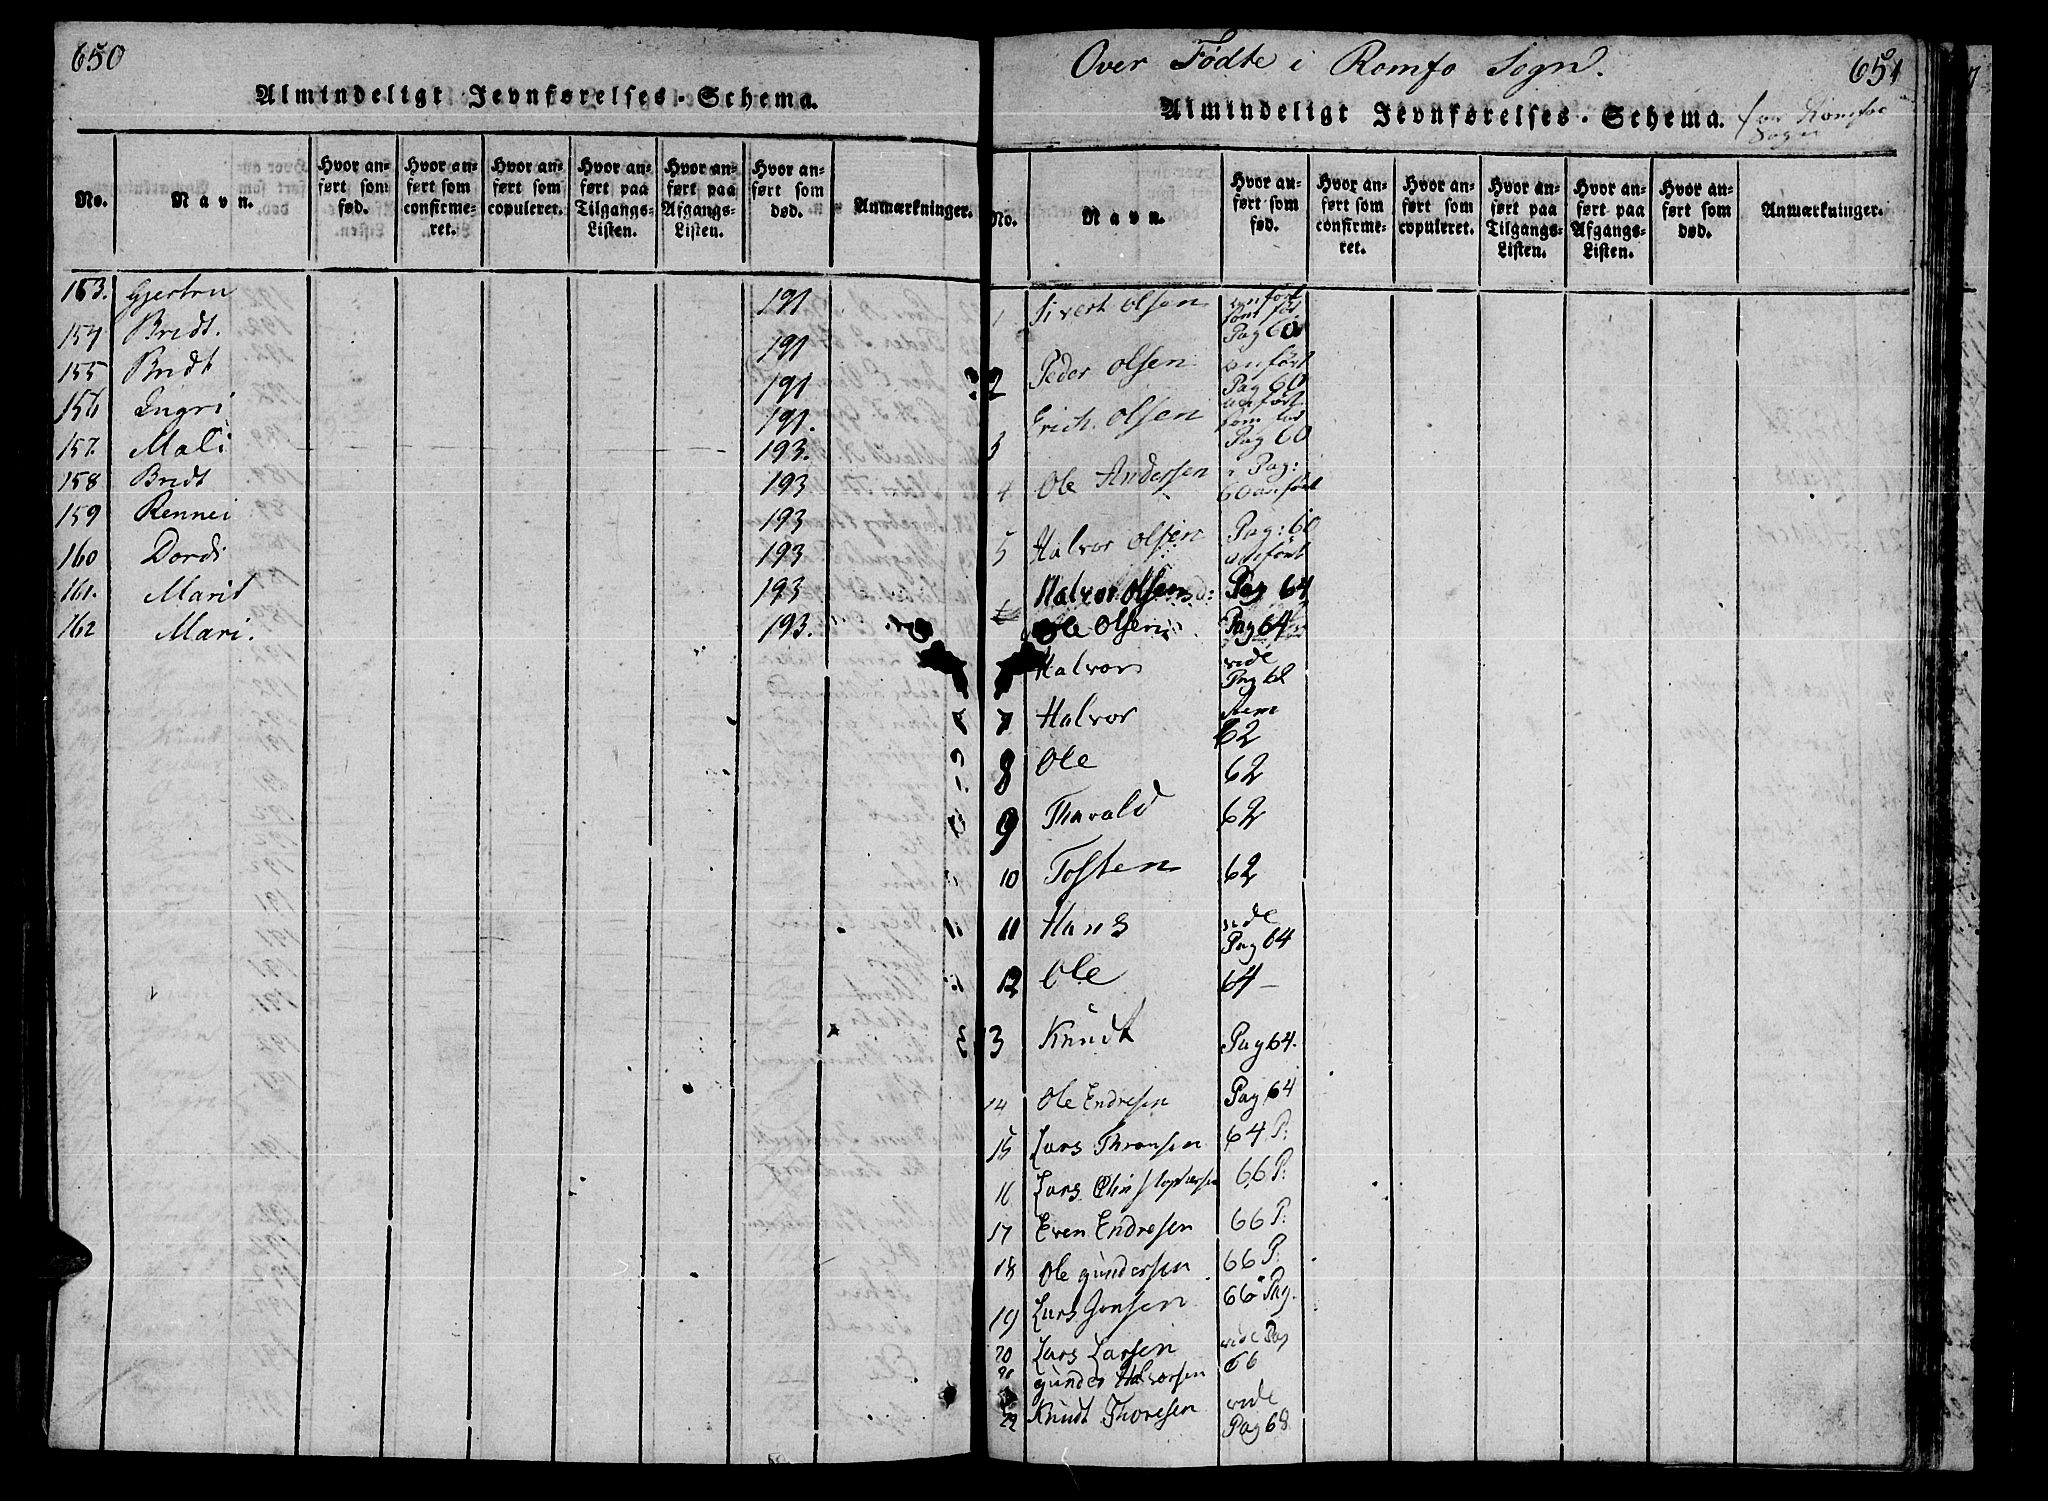 650
Almindeligt Jevnførelses-Schema.
No.
Navn.
Hvor anført som fød.
Hvor anført som confirmeret.
Hvor anført som copuleret.
Hvor anført paa Tilgangs-Listen.
Hvor anført paa Afgangs-Listen.
Hvor anført som død.
Anmærkninger.
153. Gjertru 191
154 Bredt. 191
155 Bredt 191
156 Ingri 191.
157. Mali 193.
158 Bredt 193
159 Rennei 193
160 Dordi 193
161. Marit 193
162 Mari. 193.
Over Fødte i Romfo Sogn.
651
Almindeligt Jevnførelses-Schema.
for Romfoe
Sogn
No.
Navn.
Hvor anført som fød.
Hvor anført som confirmeret.
Hvor anført som copuleret.
Hvor anført paa Tilgangs-Listen.
Hvor anført paa Afgangs-Listen.
Hvor anført som død.
Anmærkninger.
1 Sivert Olsen anført
som fød
Pag 60
2 Peder Olsen anført
Pag 60
3 Erich Olsen anført
som
Pag 60
4 Ole Andersen i Pag:
60 anført
5 Halvor Olsen Pag: 60
anført
Halvor Olsen Pag 64
Ole Olsen Pag 64
Halvor vide
Pag 62
7 Halvor Item
62
8 Ole 62
9 Tharald 62
10 Tosten 62
11 Hans vide
Pag 64
12 Ole 64
13 Knudt Pag 64.
14 Ole Endresen Pag 64
15 Lars Thronsen 64 P:
16 Lars Christophersen 66 P:
17 Even Endresen 66 P:
18 Ole Gundersen 66 P:
19 Lars Jonsen 66 Pag.
20 Lars Larsen vide Pag
66
Gunder Halvorsen
22 Knudt Thoresen vide
Pag 68